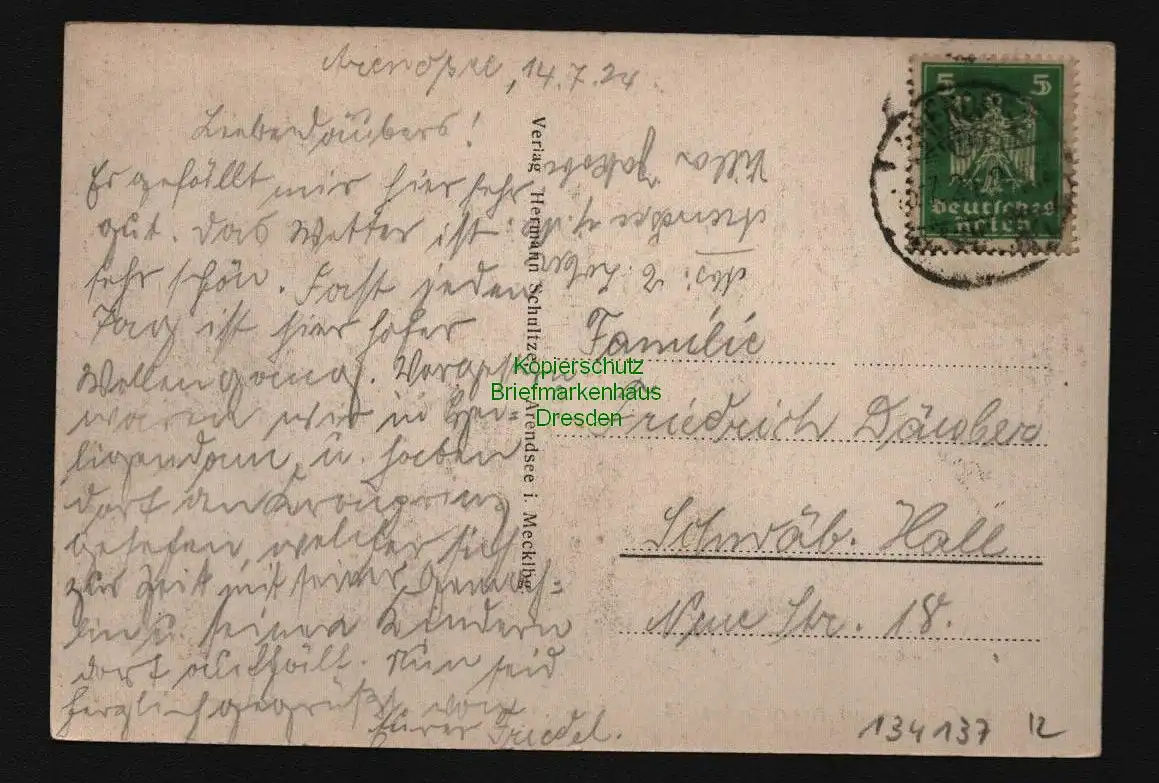 Arendsee, 14.7.24
Liebe Däubers!
Es gefällt mir hier sehr
gut. Das Wetter ist
sehr schön. Fast jeden
Tag ist hier hoher
Wellengang. Vorgestern
waren wir in Hei-
ligendamm, u. haben
dort den Kronprinz
gesehen, welcher sich
zur Zeit mit seiner Gemah-
lin u. seinen Kindern
dort aufhält. Nun seid
herzlich gegrüßt, von
Eurer Friedel.
Villa
Arendsee i. M.
Verlag Hermann Schultze, Arendsee i. Mecklbg.
5 5
Deutsches
Reich
Familie
Friedrich Däuber
Schwäb. Hall
Neue Str. 18.
134137 12
Kopierschutz
Briefmarkenhaus
Dresden